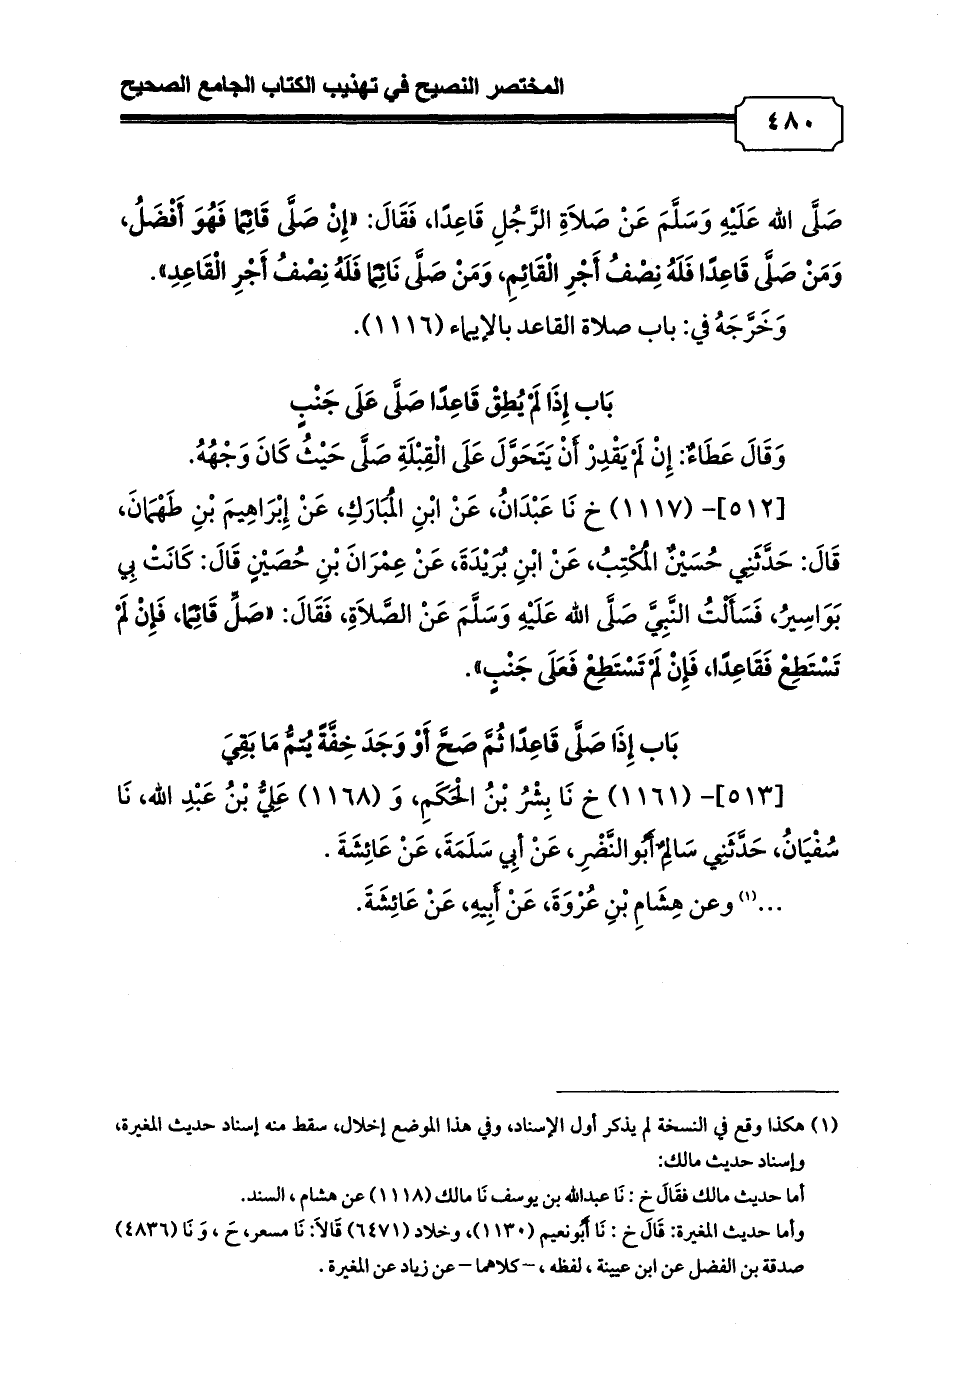 المختصر النصيح في تهذيب الكتاب الجامع الصحيح
٤٨٠
صَلَّى الله عَلَيْهِ وَسَلَّمَ عَنْ صَلاَةِ الرَّجُلِ قَاعِدًا، فَقَالَ: «إِنْ صَلَّى قَائِمًا فَهُوَ أَفْضَلُ،
وَمَنْ صَلَّى قَاعِدًا فَلَهُ نِصْفُ أَجْرِ الْقَائِمِ، وَمَنْ صَلَّى نَائِمًا فَلَهُ نِصْفُ أَجْرِ الْقَاعِدِ».
وَخَرَّجَهُ في: باب صلاة القاعد بالإيماء (١١١٦).
بَاب إِذَا لَمْ يُطِقْ قَاعِدًا صَلَّى عَلَى جَنْبٍ
وَقَالَ عَطَاءٌ: إِنْ لَمْ يَقْدِرْ أَنْ يَتَحَوَّلَ عَلَى الْقِبْلَةِ صَلَّى حَيْثُ كَانَ وَجْهُهُ.
[٥١٢]- (١١١٧) خ نَا عَبْدَانُ، عَنْ ابْنِ الْمُبَارَكِ، عَنْ إِبْرَاهِيمَ بْنِ طَهْمَانَ،
قَالَ: حَدَّثَنِي حُسَيْنٌ الْمُكْتِبُ، عَنْ ابْنِ بُرَيْدَةَ، عَنْ عِمْرَانَ بْنِ حُصَيْنٍ قَالَ: كَانَتْ بِي
بَوَاسِيرُ، فَسَأَلْتُ النَّبِيَّ صَلَّى الله عَلَيْهِ وَسَلَّمَ عَنْ الصَّلاَةِ، فَقَالَ: «صَلِّ قَائِمًا، فَإِنْ لَمْ
تَسْتَطِعْ فَقَاعِدًا، فَإِنْ لَمْ تَسْتَطِعْ فَعَلَى جَنْبٍ».
بَاب إِذَا صَلَّى قَاعِدًا ثُمَّ صَحَّ أَوْ وَجَدَ خِفَّةً يُتمُّ مَا بَقِيَ
[٥١٣]- (١١٦١) خ نَا بِشْرُ بْنُ الْحَكَمِ، وَ (١١٦٨) عَلِيُّ بْنُ عَبْدِ الله، نَا
سُفْيَانُ، حَدَّثَنِي سَالِمٌ أَبُو النَّضْرِ، عَنْ أبِي سَلَمَةَ، عَنْ عَائِشَةَ .
...(١) وعن هِشَامِ بْنِ عُرْوَةَ، عَنْ أَبِيهِ، عَنْ عَائِشَةَ.
(١) هكذا وقع في النسخة لم يذكر أول الإسناد، وفي هذا الموضع إخلال، سقط منه إسناد حديث المغيرة،
وإسناد حديث مالك:
أما حديث مالك فقَالَ خ : نَا عبدالله بن يوسف نَا مالك (١١١٨) عن هشام ، السند.
وأما حديث المغيرة: قَالَ خ : نَا أَبُونعيم (١١٣٠)، وخلاد (٦٤٧١) قَالاَ: نَا مسعر، حَ ، وَ نَا (٤٨٣٦)
صدقة بن الفضل عن ابن عيينة ، لفظه ، -كلاهما - عن زياد عن المغيرة .